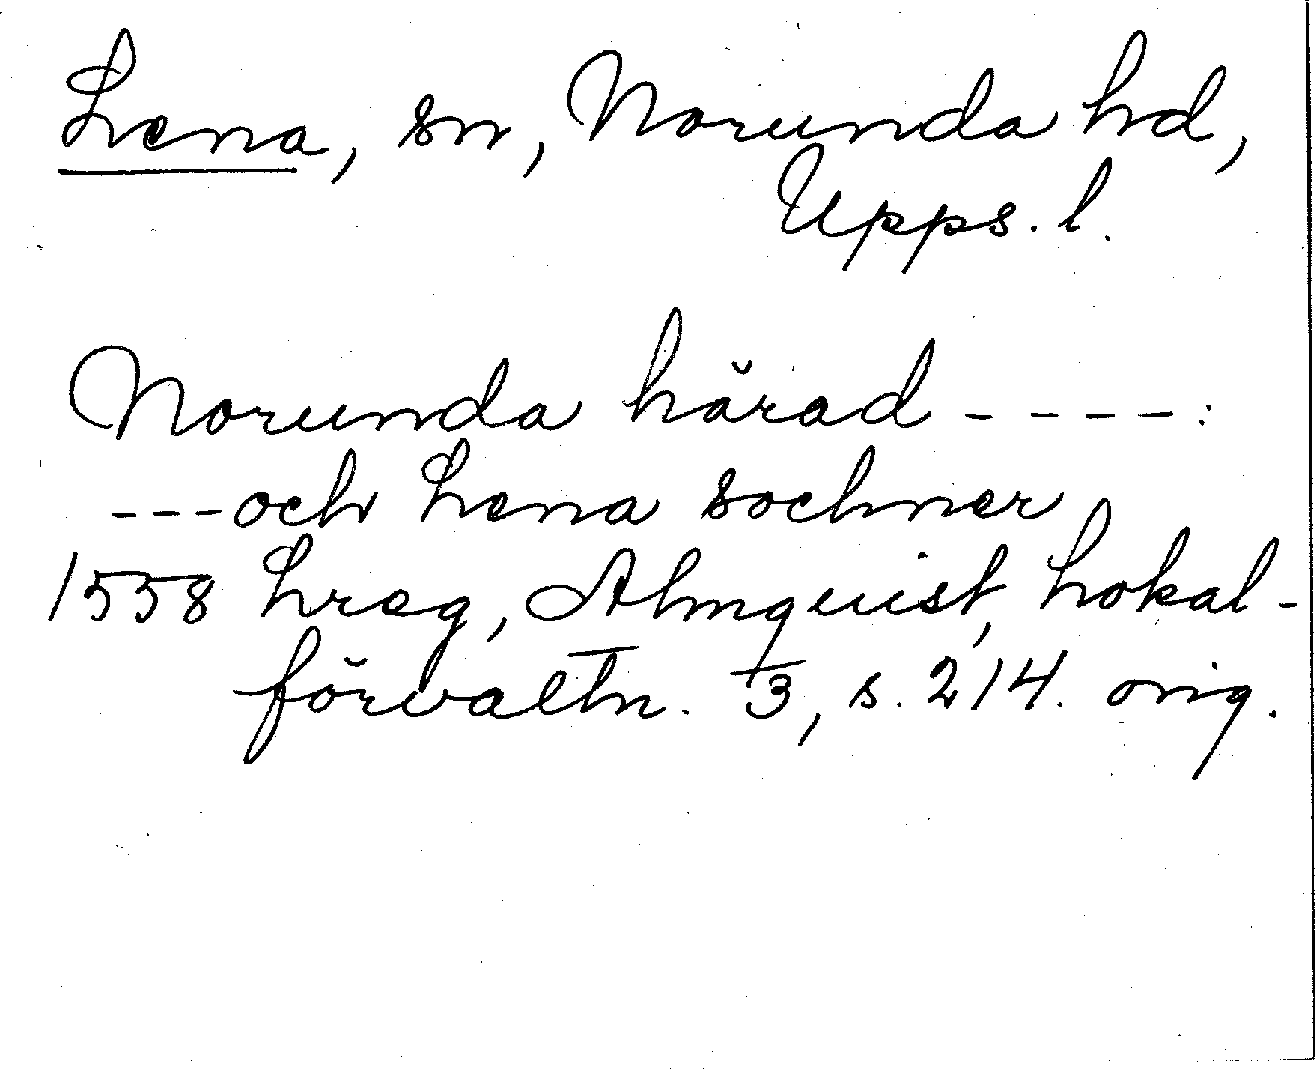 Lena, sn, Norunda hd,
Upps. l.
Norunda härad ----:
---och Lena sochner
1558 Lreg, Almquist, Lokal-
förvaltn. 3, s. 214. orig.